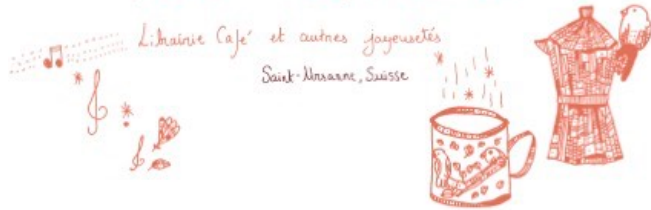 Librairie Café et autres joyeusetés
Saint-Ursanne, Suisse